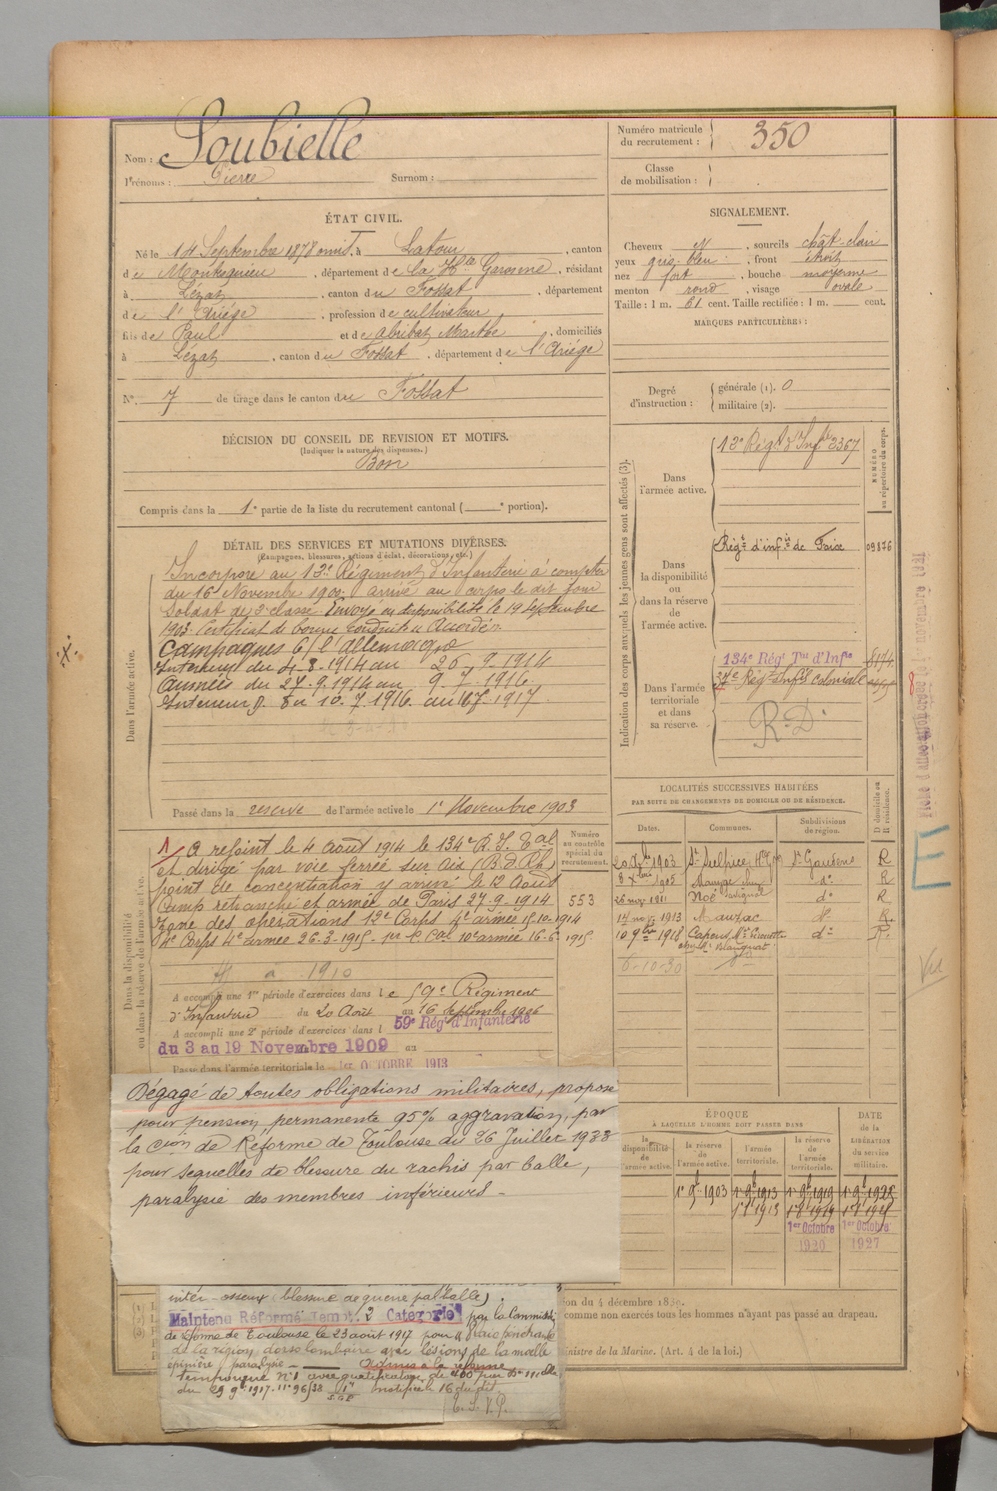 Nom : Soubielle
Prénoms : Pierre Surnom :
Numéro matricule du recrutement : 350
Classe de mobilisation :
ÉTAT CIVIL.
Né le 14 Septembre 1878 à Latour, canton
de Montesquieu, département de la Hte Garonne, résidant
à Lézat, canton du Fossat, département
de l'Ariége, profession de cultivateur
fils de Paul et de Abribat Marthe, domiciliés
à Lézat, canton du Fossat, département de l'Ariége
N° 7 de tirage dans le canton du Fossat
SIGNALEMENT.
Cheveux N, sourcils chât-clair
yeux gris-bleu, front étroit
nez fort, bouche moyenne
menton rond, visage ovale
Taille : 1 m. 61 cent. Taille rectifiée : 1 m. cent.
MARQUES PARTICULIÈRES :
Degré d'instruction : générale (1). 0
militaire (2).
DÉCISION DU CONSEIL DE REVISION ET MOTIFS.
(Indiquer la nature des dispenses.)
Bon
Compris dans la 1e partie de la liste du recrutement cantonal ( e portion).
DÉTAIL DES SERVICES ET MUTATIONS DIVERSES.
(Campagnes, blessures, actions d'éclat, décorations, etc.)
Dans l'armée active.
Incorporé au 12e Régiment d'Infanterie à compter
du 16 Novembre 1900. arrivé au corps le dit jour
Soldat de 2e classe. Envoyé en disponibilité le 19 Septembre
1903. Certificat de bonne conduite Accordé.
Campagnes c/ l'allemagne
Intérieur du 4-8-1914 au 26-9-1914
Armées du 27-9-1914 au 9-7-1916
Intérieur du 10.7.1916 au 1917
Passé dans la réserve de l'armée active le 1er Novembre 1903
Indication des corps auxquels les jeunes gens sont affectés (3).
NUMÉRO au répertoire du corps.
Dans l'armée active.
12e Régt d'Infie 2367
Dans la disponibilité ou dans la réserve de l'armée active.
Régt d'infie de Foix 09876
Dans l'armée territoriale et dans sa réserve.
134e Régt Tal d'Infie
Régt Infie coloniale
R.D.
LOCALITÉS SUCCESSIVES HABITÉES
PAR SUITE DE CHANGEMENTS DE DOMICILE OU DE RÉSIDENCE.
Dates. Communes. Subdivisions de région. D domicile ou R résidence.
1903 St Sulpice St Gaudens R
1905 Mauzac do R
1911 Noé do R
14 1913 Mauzac do R.
10 9bre 1918 Capens do R.
6-10-30
Dans la disponibilité ou dans la réserve de l'armée active.
Numéro au contrôle spécial du recrutement.
553
A rejoint le 4 août 1914 le 134e R.I. Tal
et dirigé par voie ferrée sur Aix (B.d.Rh)
point de concentration y arrivé le 12 Août
Camp retranché et armée de Paris 27-9-1914
Zone des opérations 12e Corps 4e armée 15-10-1914
4e Corps 4e armée 26-3-1915 - 10e armée 16-6-1915
A accompli une 1re période d'exercices dans le 59e Régiment
d'Infanterie du 20 Août au 16 Septembre 1906
A accompli une 2e période d'exercices dans l 59e Régt d'Infanterie
du 3 au 19 Novembre 1909 au
Passé dans l'armée territoriale le 1er OCTOBRE 1913
Dégagé de toutes obligations militaires, proposé
pour pension permanente 95% aggravation, par
la Cion de Réforme de Toulouse du 26 Juillet 1933
pour séquelles de blessure du rachis par balle,
paralysie des membres inférieurs -
ÉPOQUE
À LAQUELLE L'HOMME DOIT PASSER DANS
la disponibilité de l'armée active. la réserve de l'armée active. l'armée territoriale. la réserve de l'armée territoriale.
DATE de la LIBÉRATION du service militaire.
1er 9bre 1903 1er 9bre 1913 1er 9bre 1919
1er Octobre 1er Octobre
1920 1927
(blessure de guerre par balle).
Maintenu Réformé Tempre 2 Catégorie par la Commission
de Réforme de Toulouse le 23 août 1917 pour Plaie pénétrante
de la région dorso lombaire avec lésions de la moelle
épinière paralysie - Admis à la réforme
temporaire n°1 avec gratification de
notifiée le 16 du dit
T.S.V.P.
du 4 décembre 1889.
comme non exercés tous les hommes n'ayant pas passé au drapeau.
Ministre de la Marine. (Art. 4 de la loi.)
Vu